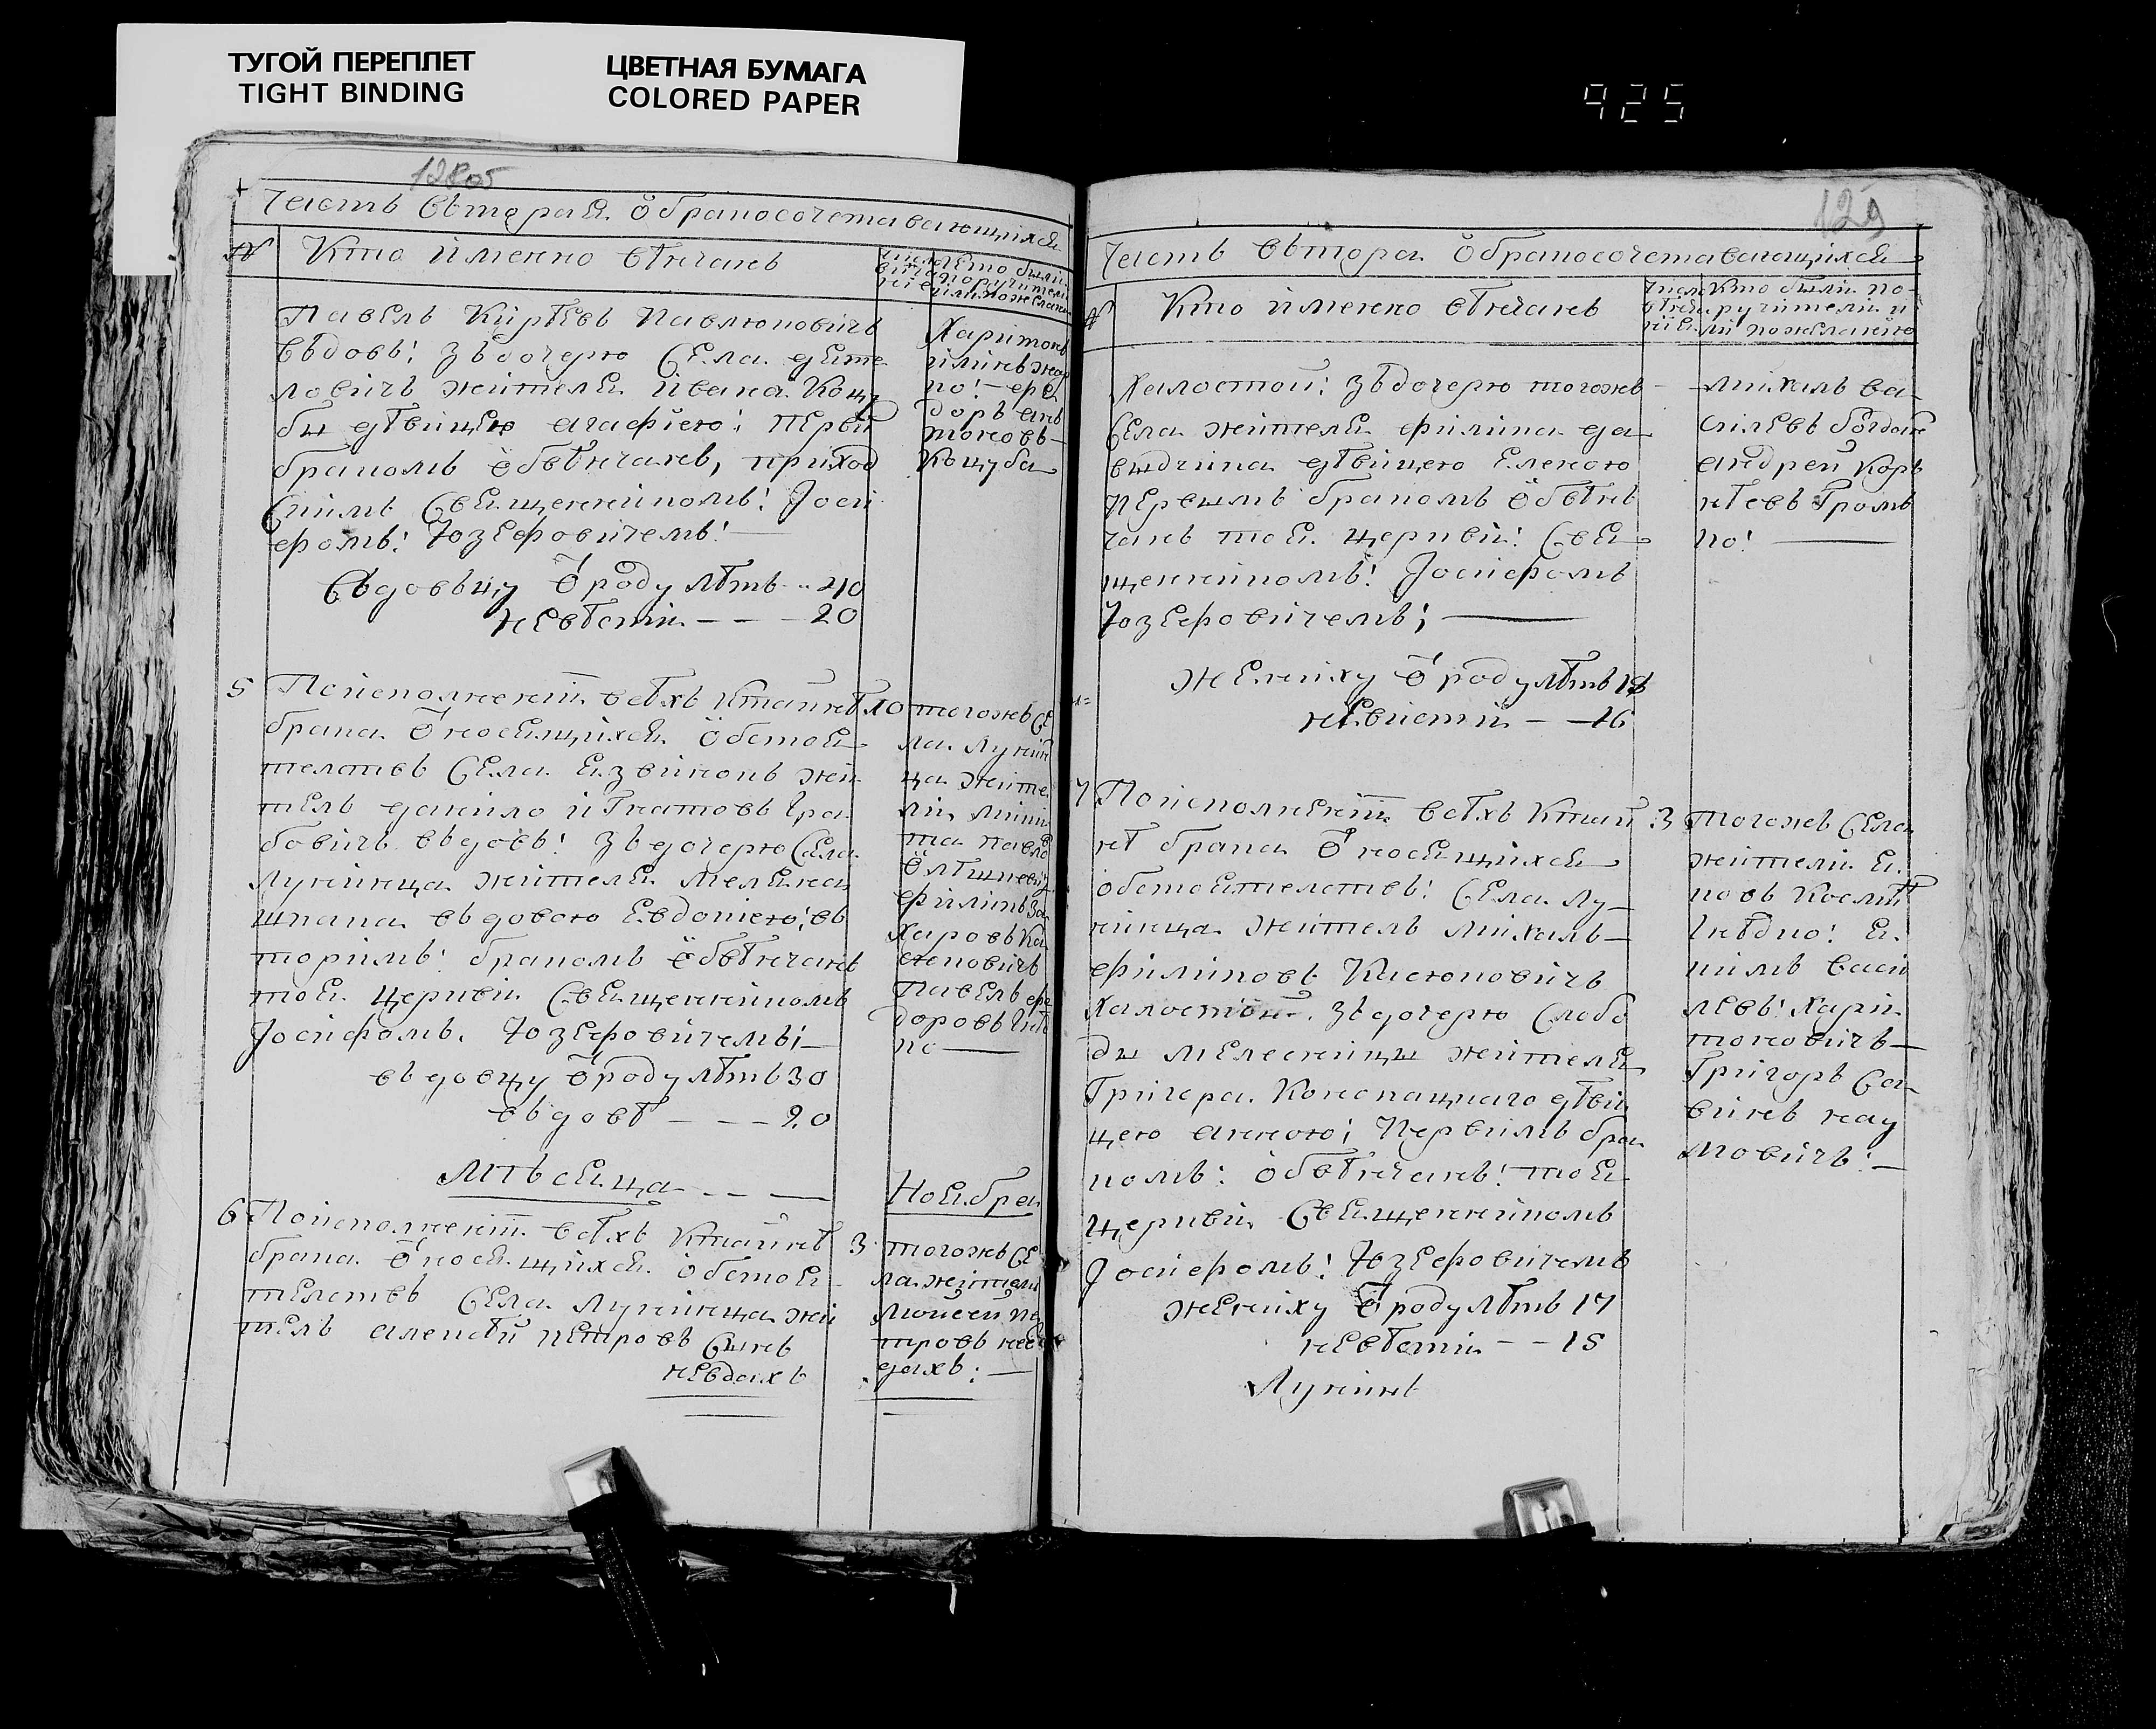 ТУГОЙ ПЕРЕПЛЕТ
TIGHT BINDING
ЦВЕТНАЯ БУМАГА
COLORED PAPER
925
1805
Часть вьторая ѡ бракосочетавающихся
№
Кто именно вѣнчанъ
Павелъ Павлюковичъ
вьдовъ: зъ дочерю села дѣте
ловичъ жителя ивана Коцу
бы дѣвицею агафиею: первы
бракомъ ѡбвѣнчанъ, приход
скимъ священникомъ: Иоси
фомъ: Юзефовичемъ:
вьдовьцу ѿ роду лѣтъ 40
невѣсти 20
Харитонъ
но: фе
доръ ань
тоновъ
Коцуба
5
По исполненіи всѣхъ к тайнѣ
брака ѿносящихся ѡбстоя
телствъ села язвинокъ жи
тель данило игнатовъ гра
бовичъ вьдовъ: зъ дочерю села
лунинца жителя
шпака вьдовою Евдокиею: въ
торимъ: бракомъ ѡбвѣнчанъ
тоя церкви священникомъ
Иосифомъ. Юзефовичемъ:
вьдовцу ѿ роду лѣтъ 30
вьдовѣ 20
10
тогожъ се
ла лунин
ца жите
ли мики
та павло
филипъ за
харовъ ка
сюковичъ
павелъ фе
доровъ
ко
Мѣсяца
Ноября
6
По исполненіи всѣхъ к тайнѣ
брака ѿносящихся ѡбстоя
телствъ села лунинца жи
тель алексѣй петровъ сынъ
невдахъ
3
тогожъ се
ла жители
моисей пе
тровъ нев
дахъ:
129
Часть вьтора ѡ бракосочетавающихся
№
Кто именно вѣнчанъ
Кто были по
ручители и
ли по желанию
Халостои: зъ дочерю тогожъ
села жителя филипа да
выдчика дѣвицею Еленою
первымъ бракомъ ѡбвѣн
чанъ тоя церкви: свя
щенникомъ: Иосифомъ
Юзефовичемъ;
жениху ѿ роду лѣтъ 18
невисти 16
михаль ва
силевъ богдане
андрей кор
нѣевъ громъ
ко:
7
По исполненіи всѣхъ к тай
нѣ брака ѿносящихся
обстоятелствъ: села лу
нинца житель михаль
филиповъ Касюковичъ
халостои. зъ дочерю слобо
ды мелесницы жителя
Григора Конопацкаго дѣви
цею анною; первимъ бра
комъ: ѡбвѣнчанъ: тоя
церкви священникомъ
Иосифомъ: Юзефовичемъ
жениху ѿ роду лѣтъ 17
невѣсти 15
Лунинъ
3
тогожъ села
жители я
ковъ косми
гнѣдко: я
кимъ васи
левъ: хари
тоновичъ
Григоръ са
винъ нау
мовичъ: